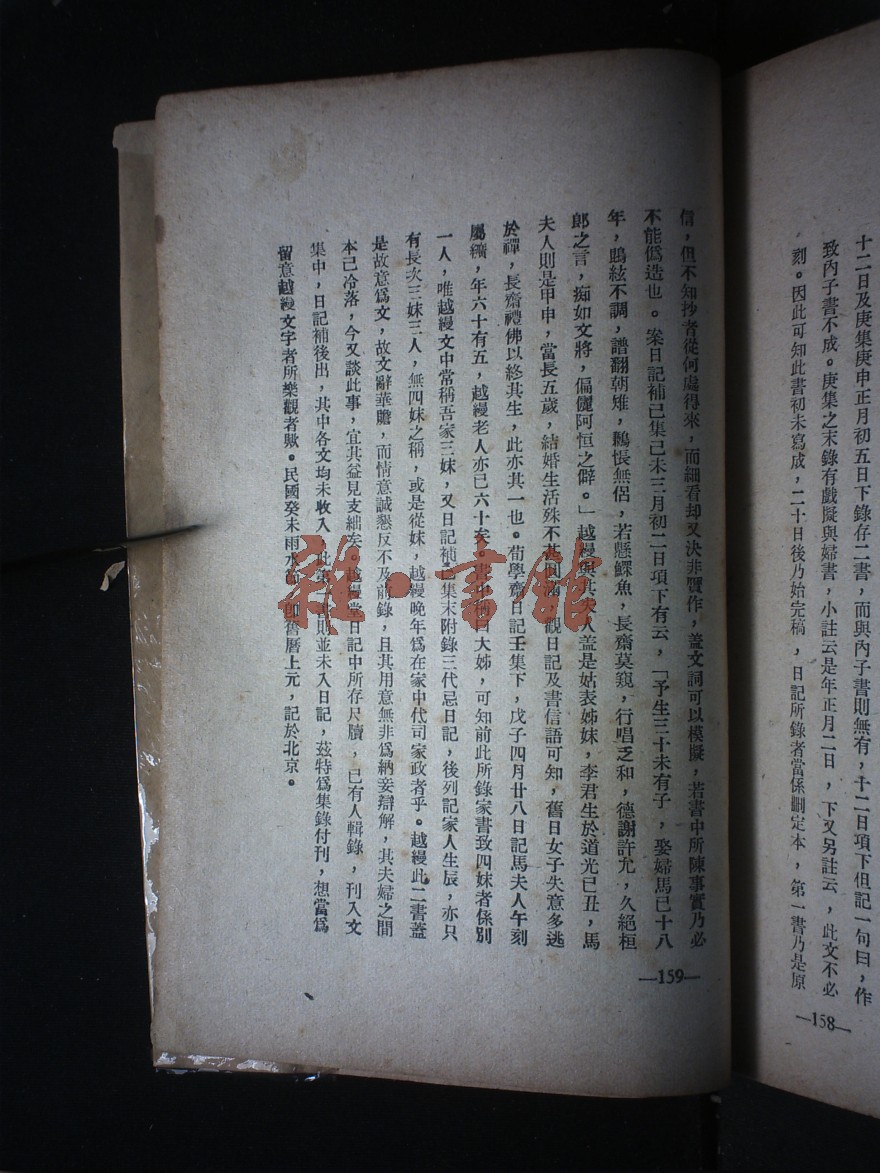 十二日及庚集庚申正月初五日下錄存二書，而與內子書則無有，十二日項下但記一句曰，作
致內子書不成。庚集之末錄有戲擬與婦書，小註云是年正月二日，下又另註云，此文不必
刻。因此可知此書初未寫成，二十日後乃始完稿，日記所錄者當係刪定本，第一書乃是原
—158—
信，但不知抄者從何處得來，而細看却又決非贗作，蓋文詞可以模擬，若書中所陳事實乃必
不能僞造也。案日記補己集己未三月初二日項下有云，「予生三十未有子，娶婦馬已十八
年，鵾絃不調，譜翻朝雉，鶼悵無侶，若懸鰥魚，長齋莫窺，行唱乏和，德謝許允，久絕桓
郎之言，痴如文將，偏儷阿恒之僻。」越縵與其夫人蓋是姑表姊妹，李君生於道光己丑，馬
夫人則是甲申，當長五歲，結婚生活殊不甚圓滿，觀日記及書信語可知，舊日女子失意多逃
於禪，長齋禮佛以終其生，此亦其一也。荀學齋日記壬集下，戊子四月廿八日記馬夫人午刻
屬纊，年六十有五，越縵老人亦已六十矣。書中稱曰大姊，可知前此所錄家書致四妹者係別
一人，唯越縵文中常稱吾家三妹，又日記補己集末附錄三代忌日記，後列記家人生辰，亦只
有長次三妹三人，無四妹之稱，或是從妹，越縵晚年爲在家中代司家政者乎。越縵此二書蓋
是故意爲文，故文辭華贍，而情意誠懇反不及前錄，且其用意無非爲納妾辯解，其夫婦之間
本已冷落，今又談此事，宜其益見支絀矣。越縵堂日記中所存尺牘，已有人輯錄，刊入文
集中，日記補後出，其中各文均未收入，此第一書則並未入日記，茲特爲集錄付刊，想當爲
留意越縵文字者所樂觀者歟。民國癸未雨水節，卽舊曆上元，記於北京。
—159—
雜·書館